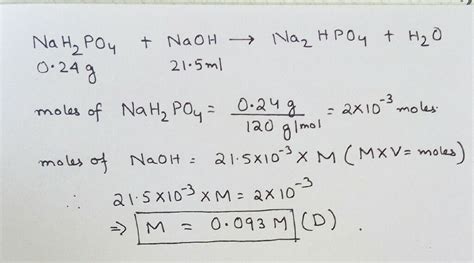 NaH₂PO₄ + NaOH → Na₂HPO₄ + H₂O
0.24 g 21.5 ml
moles of NaH₂PO₄ = 0.24 g / 120 g/mol = 2×10⁻³ moles.
moles of NaOH = 21.5×10⁻³ × M (M×V= moles)
∴ 21.5×10⁻³ × M = 2×10⁻³
⇒ M = 0.093 M (D).